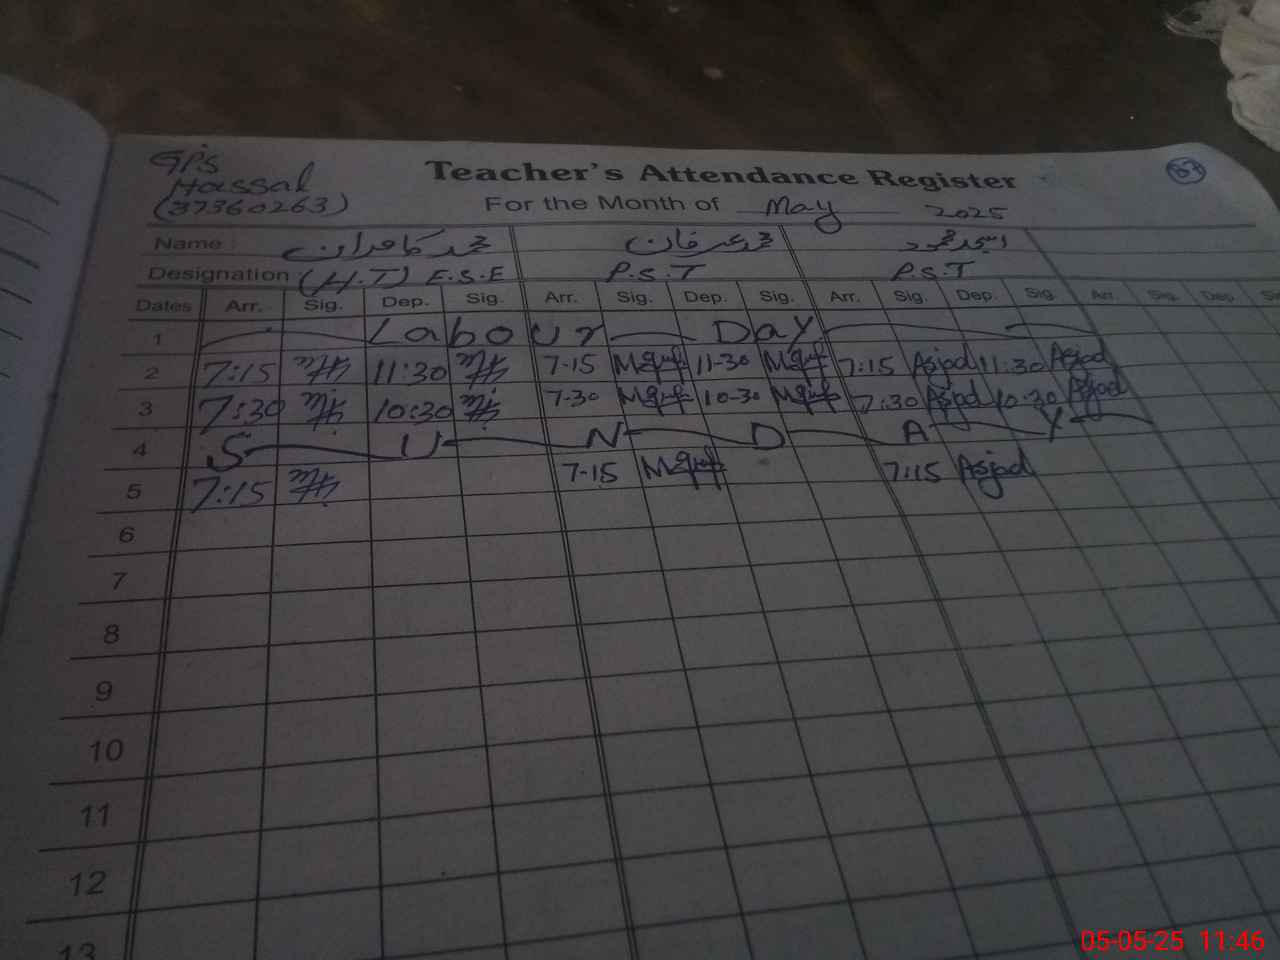 GPS
Hassal
(37360263)
Teacher's Attendance Register
87
For the Month of May 2025
Name محمد کامران محمد عرفان اسجد محمود
Designation (H.T) E.S.E P.S.T P.S.T
Dates Arr. Sig. Dep. Sig. Arr. Sig. Dep. Sig. Arr. Sig. Dep. Sig. Arr. Sig. Dep. Si
1 Labour Day
2 7:15 11:30 7-15 11-30 7:15 Asjad 11:30 Asjad
3 7:30 10:30 7-30 10-30 7:30 Asjad 10:30 Asjad
4 S U N D A Y
5 7:15 7-15 7:15 Asjad
6
7
8
9
10
11
12
13
05-05-25 11:46